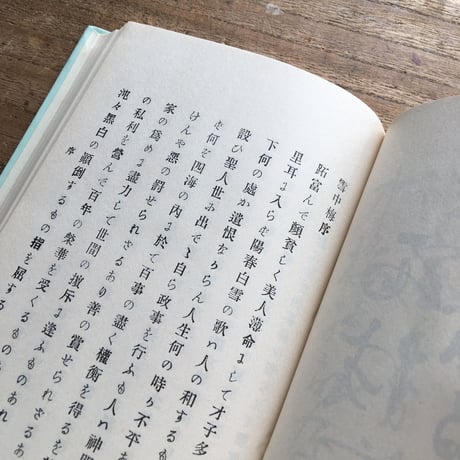 雪中梅序
跖富んで顔貧しく美人薄命にして才子多
里耳に入らず陽春白雪の歌ハ人の和するも
下何の處か遺恨なからん人生何の時か不平あ
設ひ聖人世に出でゝ自ら政事を行ふも人ハ神明
ず何ぞ四海の内に於て百事の盡く權衡を得るを
けんや惡の罰せられざるあり善の賞せられざるあ
家の爲めに盡力して世間の擯斥に逢ふものあれ
の私利を營んで百年の榮華を受くるものあ
滔々黑白の顚倒するもの指を屈する
序